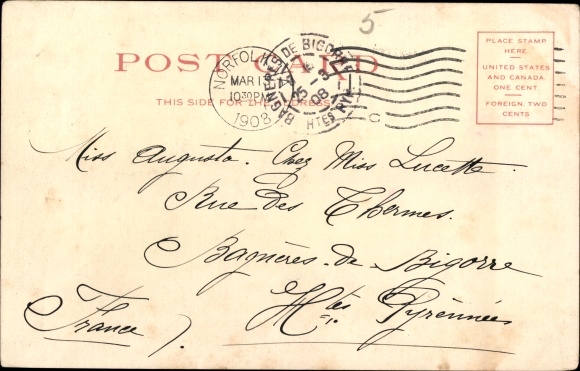 5
POST CARD
THIS SIDE FOR THE ADDRESS
PLACE STAMP
HERE
UNITED STATES
AND CANADA
ONE CENT
FOREIGN, TWO
CENTS
NORFOLK
MAR 1
10 30 PM
1908
C
BAGNERES DE BIGORRE
08
HTES PYR.
Miss Augusta. Chez Miss Lucette.
Rue des Thermes.
Bagnères-de-Bigorre
Htes Pyrénnées
(France).